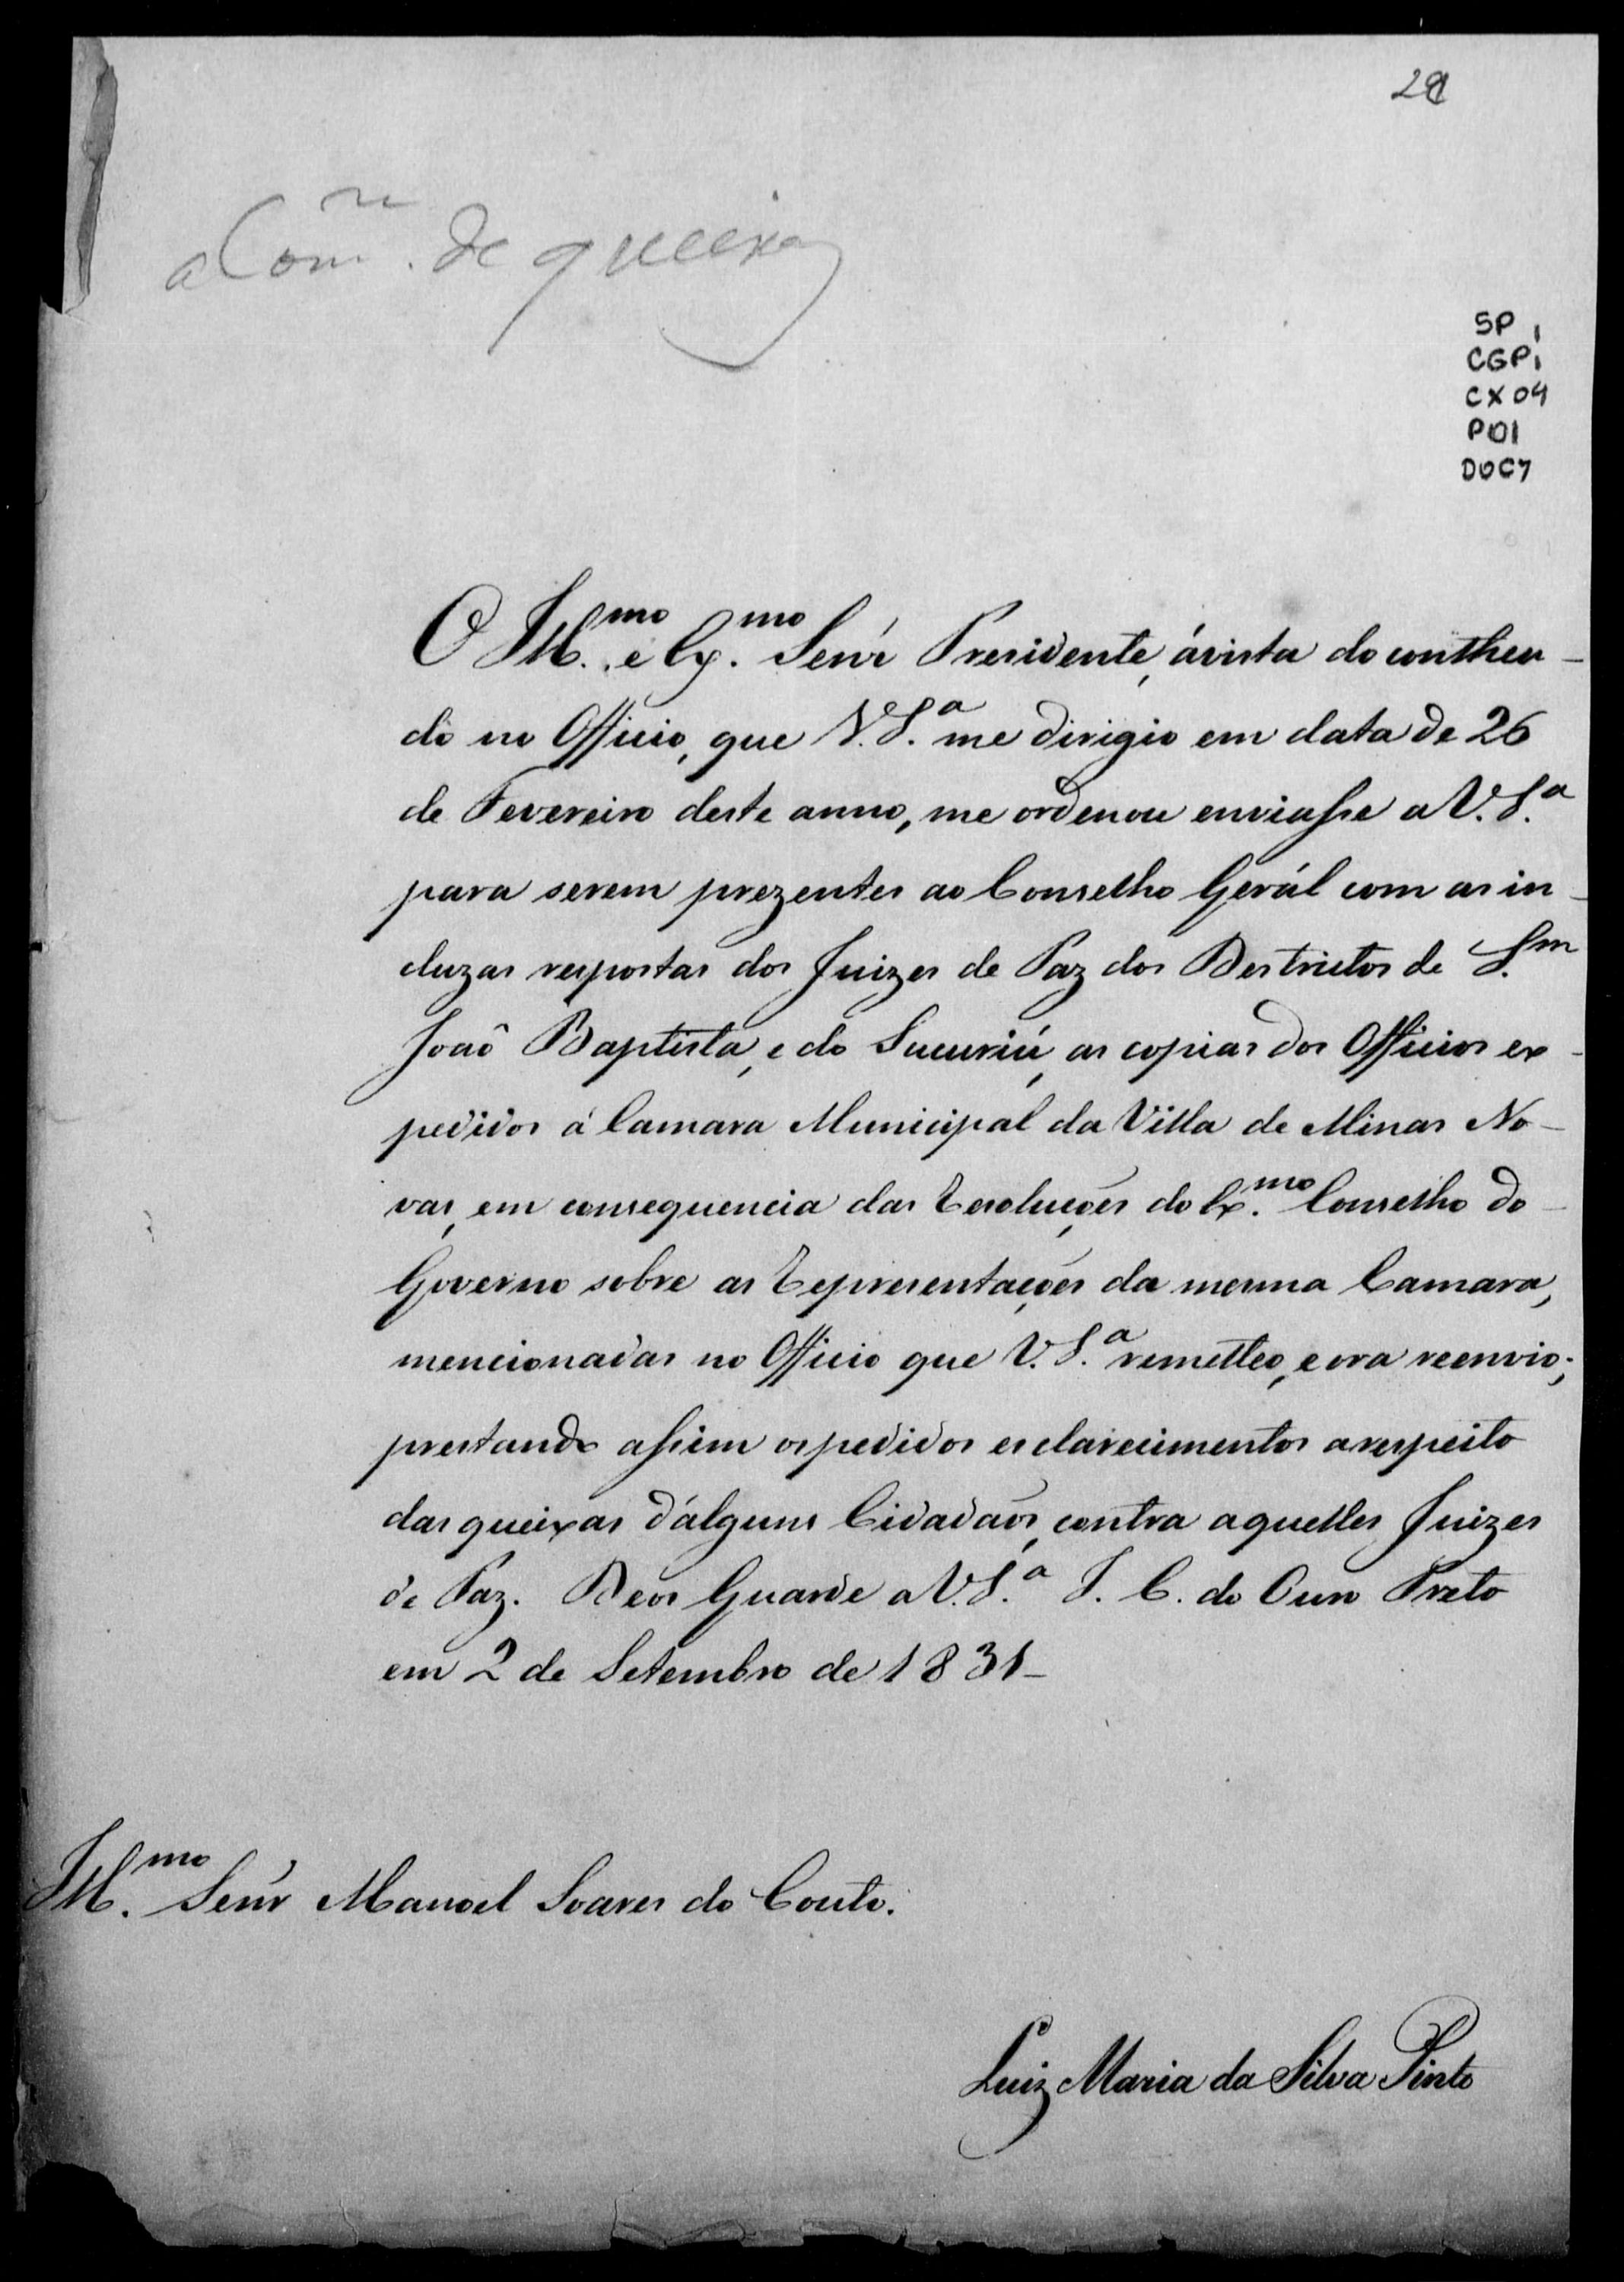 a Com.m de queixas
SP 1
CGP1
CX 04
P01
DOC7
O Ill.mo e Ex.mo Senr̃ Presidente, ávista do contheu-
do no Officio, que V.S.a me dirigio em data de 26
de Fevereiro deste anno, me ordenou enviasse a V.S.a
para serem prezentes ao Conselho Gerál com as in-
cluzas respostas dos Juizes de Paz dos Destrictos de S.m
João Baptista, e do Sucuriú, as copias dos Officios ex-
pedidos á Camara Municipal da Villa de Minas No-
vas, em consequencia das Resoluções do Ex.mo Conselho do
Governo sobre as Representações da mesma Camara,
mencionadas no Officio que V.S.a remetteo, e ora reenvio;
prestando assim os pedidos esclarecimentos a respeito
das queixas d'alguns Cidadãos, contra aquelles Juizes
de Paz. Deos Guarde a V.S.a I. C. do Ouro Preto
em 2 de Setembro de 1831-
Ill.mo Senr̃ Manoel Soares do Couto.
Luiz Maria da Silva Pinto